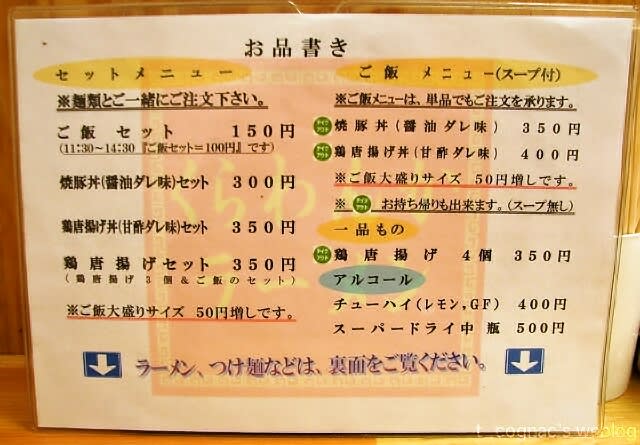 お品書き
セットメニュー
※麺類とご一緒にご注文下さい。
ご飯 セット 150円
(11:30~14:30『ご飯セット=100円』です)
焼豚丼(醤油ダレ味)セット 300円
鶏唐揚げ丼(甘酢ダレ味)セット 350円
鶏唐揚げセット 350円
(鶏唐揚げ3個&ご飯のセット)
※ご飯大盛りサイズ 50円増しです。
ご飯 メニュー(スープ付)
※ご飯メニューは、単品でもご注文を承ります。
焼豚丼(醤油ダレ味) 350円
鶏唐揚げ丼(甘酢ダレ味) 400円
※ご飯大盛りサイズ 50円増しです。
※ テイクアウト お持ち帰りも出来ます。(スープ無し)
一品もの
鶏唐揚げ 4個 350円
アルコール
チューハイ(レモン,GF) 400円
スーパードライ中瓶 500円
ラーメン、つけ麺などは、裏面をご覧ください。
t_cognac's weblog